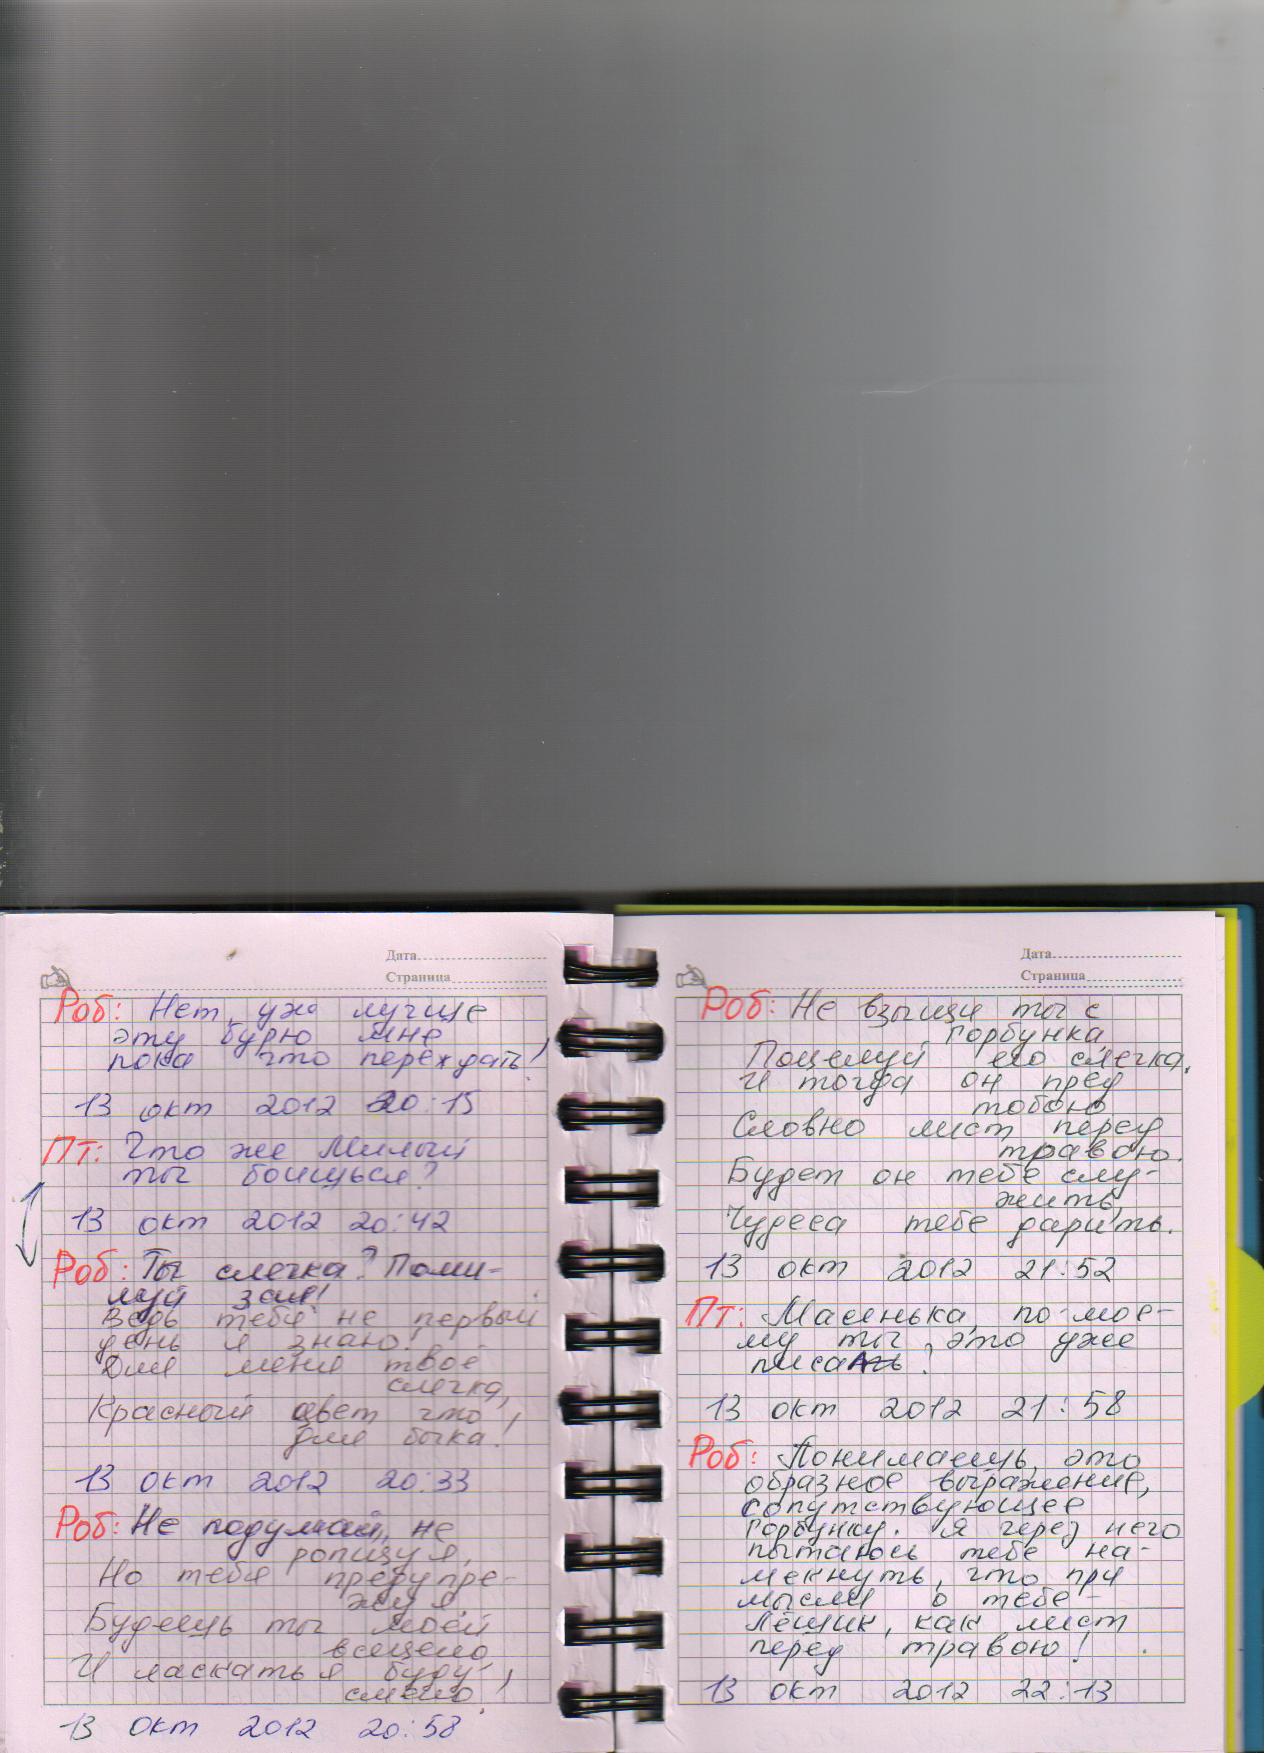 Дата
Страница
Роб: Нет, уж лучше
эту бурю мне
пока что переждать!
13 окт 2012 20:15
Пт: Что же Милый
ты боишься?
13 окт 2012 20:42
Роб: Ты слегка? Поми-
луй зая!
Ведь тебя не первый
день я знаю!
Для меня твоё
слегка,
Красный цвет что
для быка!
13 окт 2012 20:33
Роб: Не подумай, не
ропщу я,
Но тебя предупре-
жу я,
Будешь ты моей
всецело
И ласкать я буду
смело!
13 окт 2012 20:58
Дата
Страница
Роб: Не взыщи ты с
горбунка
Поцелуй его слегка,
И тогда он пред
тобою
Словно лист перед
травою.
Будет он тебе слу-
жить,
Чудеса тебе дарить.
13 окт 2012 21:52
Пт: Масенька, по-мое-
му ты это уже
писал.
13 окт 2012 21:58
Роб: Понимаешь, это
образное выражение,
сопутствующее
горбунку. Я через него
пытаюсь тебе на-
мекнуть, что при
мысли о тебе -
Лёшик, как лист
перед травою!
13 окт 2012 22:13